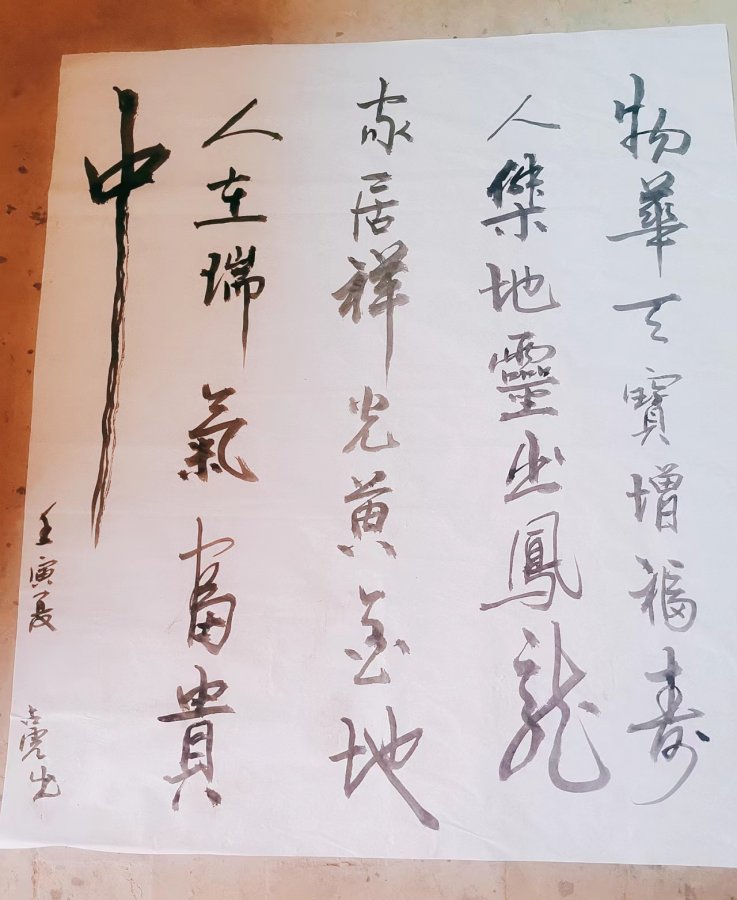 物華天寶增福壽
人傑地靈出鳳龍
家居祥光黄金地
人在瑞氣富貴
中
壬寅夏